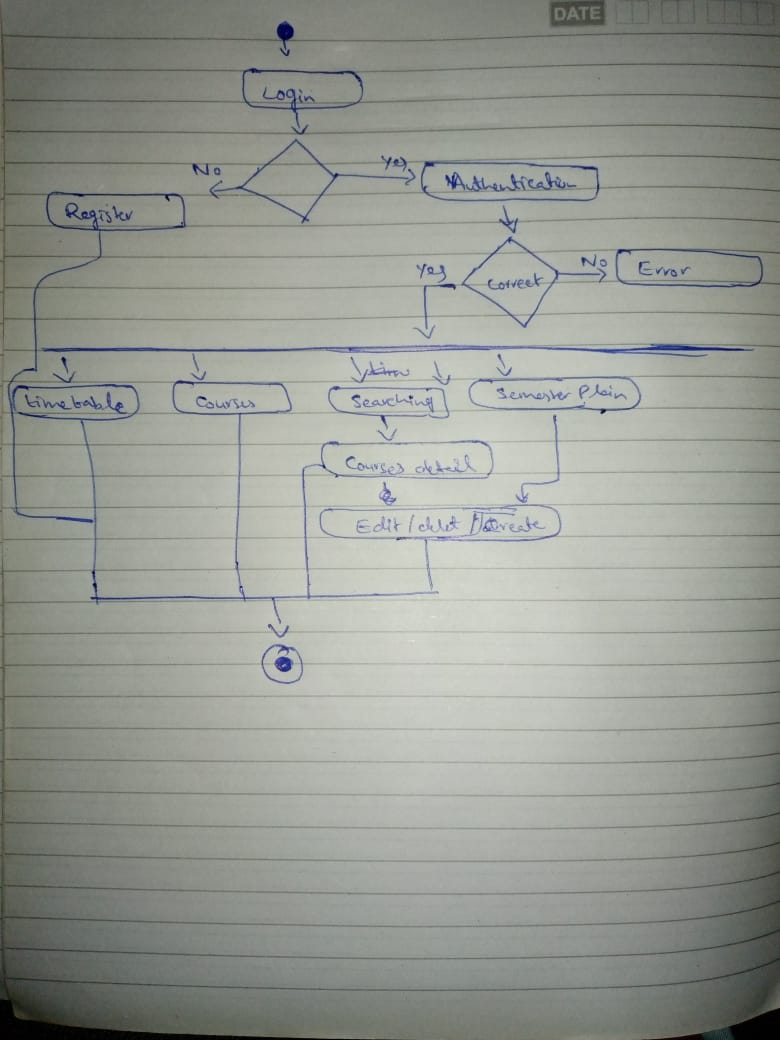 DATE
Login
No
Yes
Authentication
Register
Yes
Correct
No
Error
timetable
Courses
Searching
Semester Plain
Courses detail
Edit / delet / Create